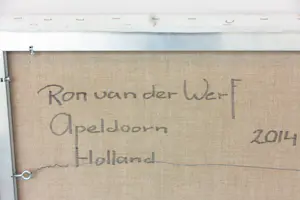 Ron van der Werf
Apeldoorn
2014
Holland